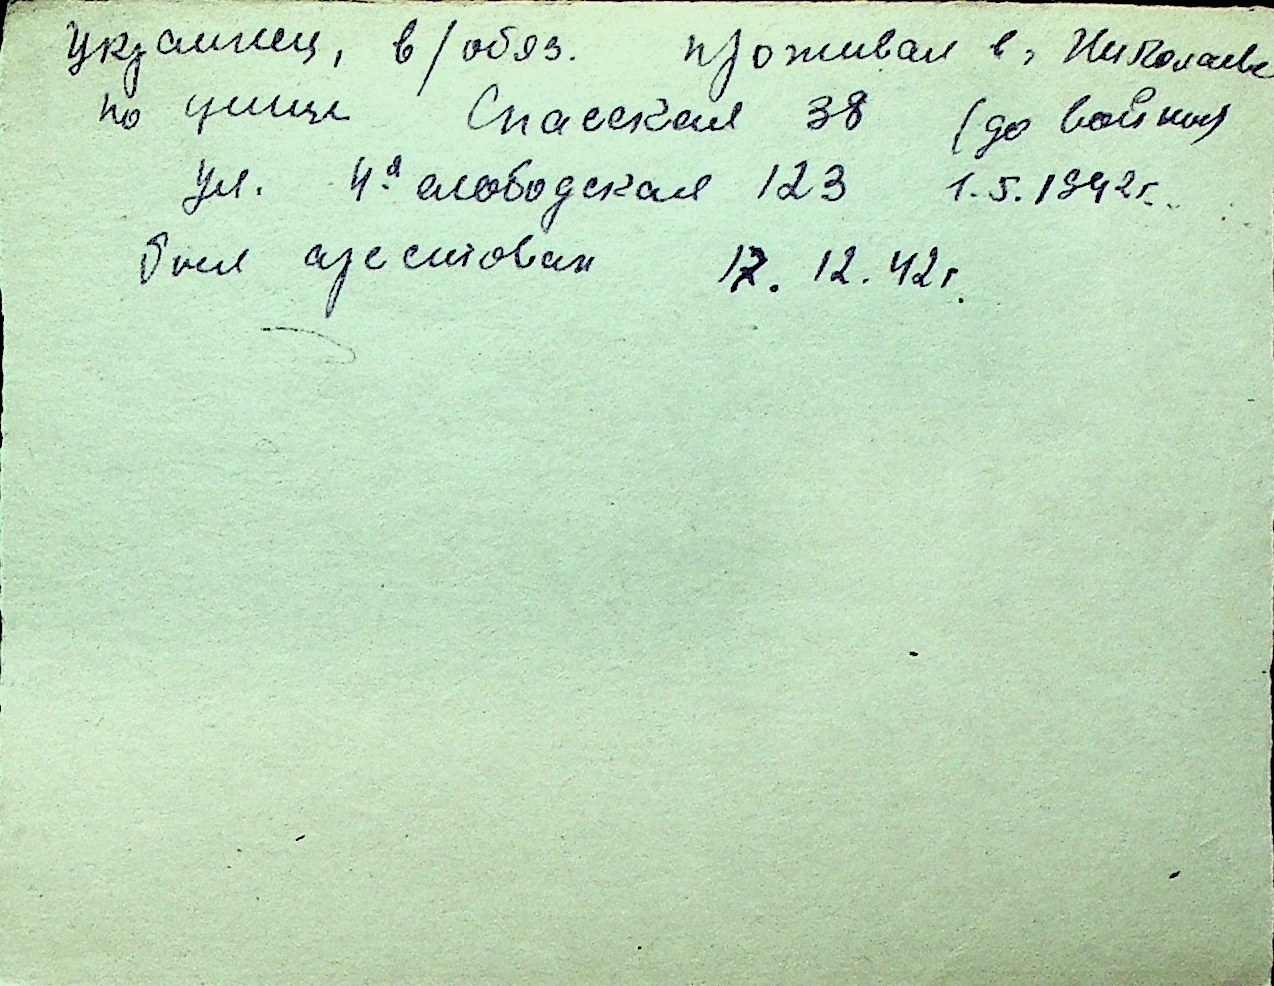 Украинец, в/обяз. проживал в г. Николаеве
по улице Спасская 38 (до войны)
ул. 4ая слободская 123 1.5.1942г.
был арестован 17. 12. 42г.